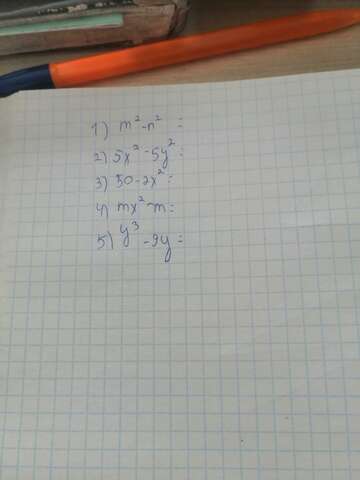 1) m² - n² =
2) 5x² - 5y² =
3) 50 - 2x² =
4) mx² - m =
5) y³ - 9y =